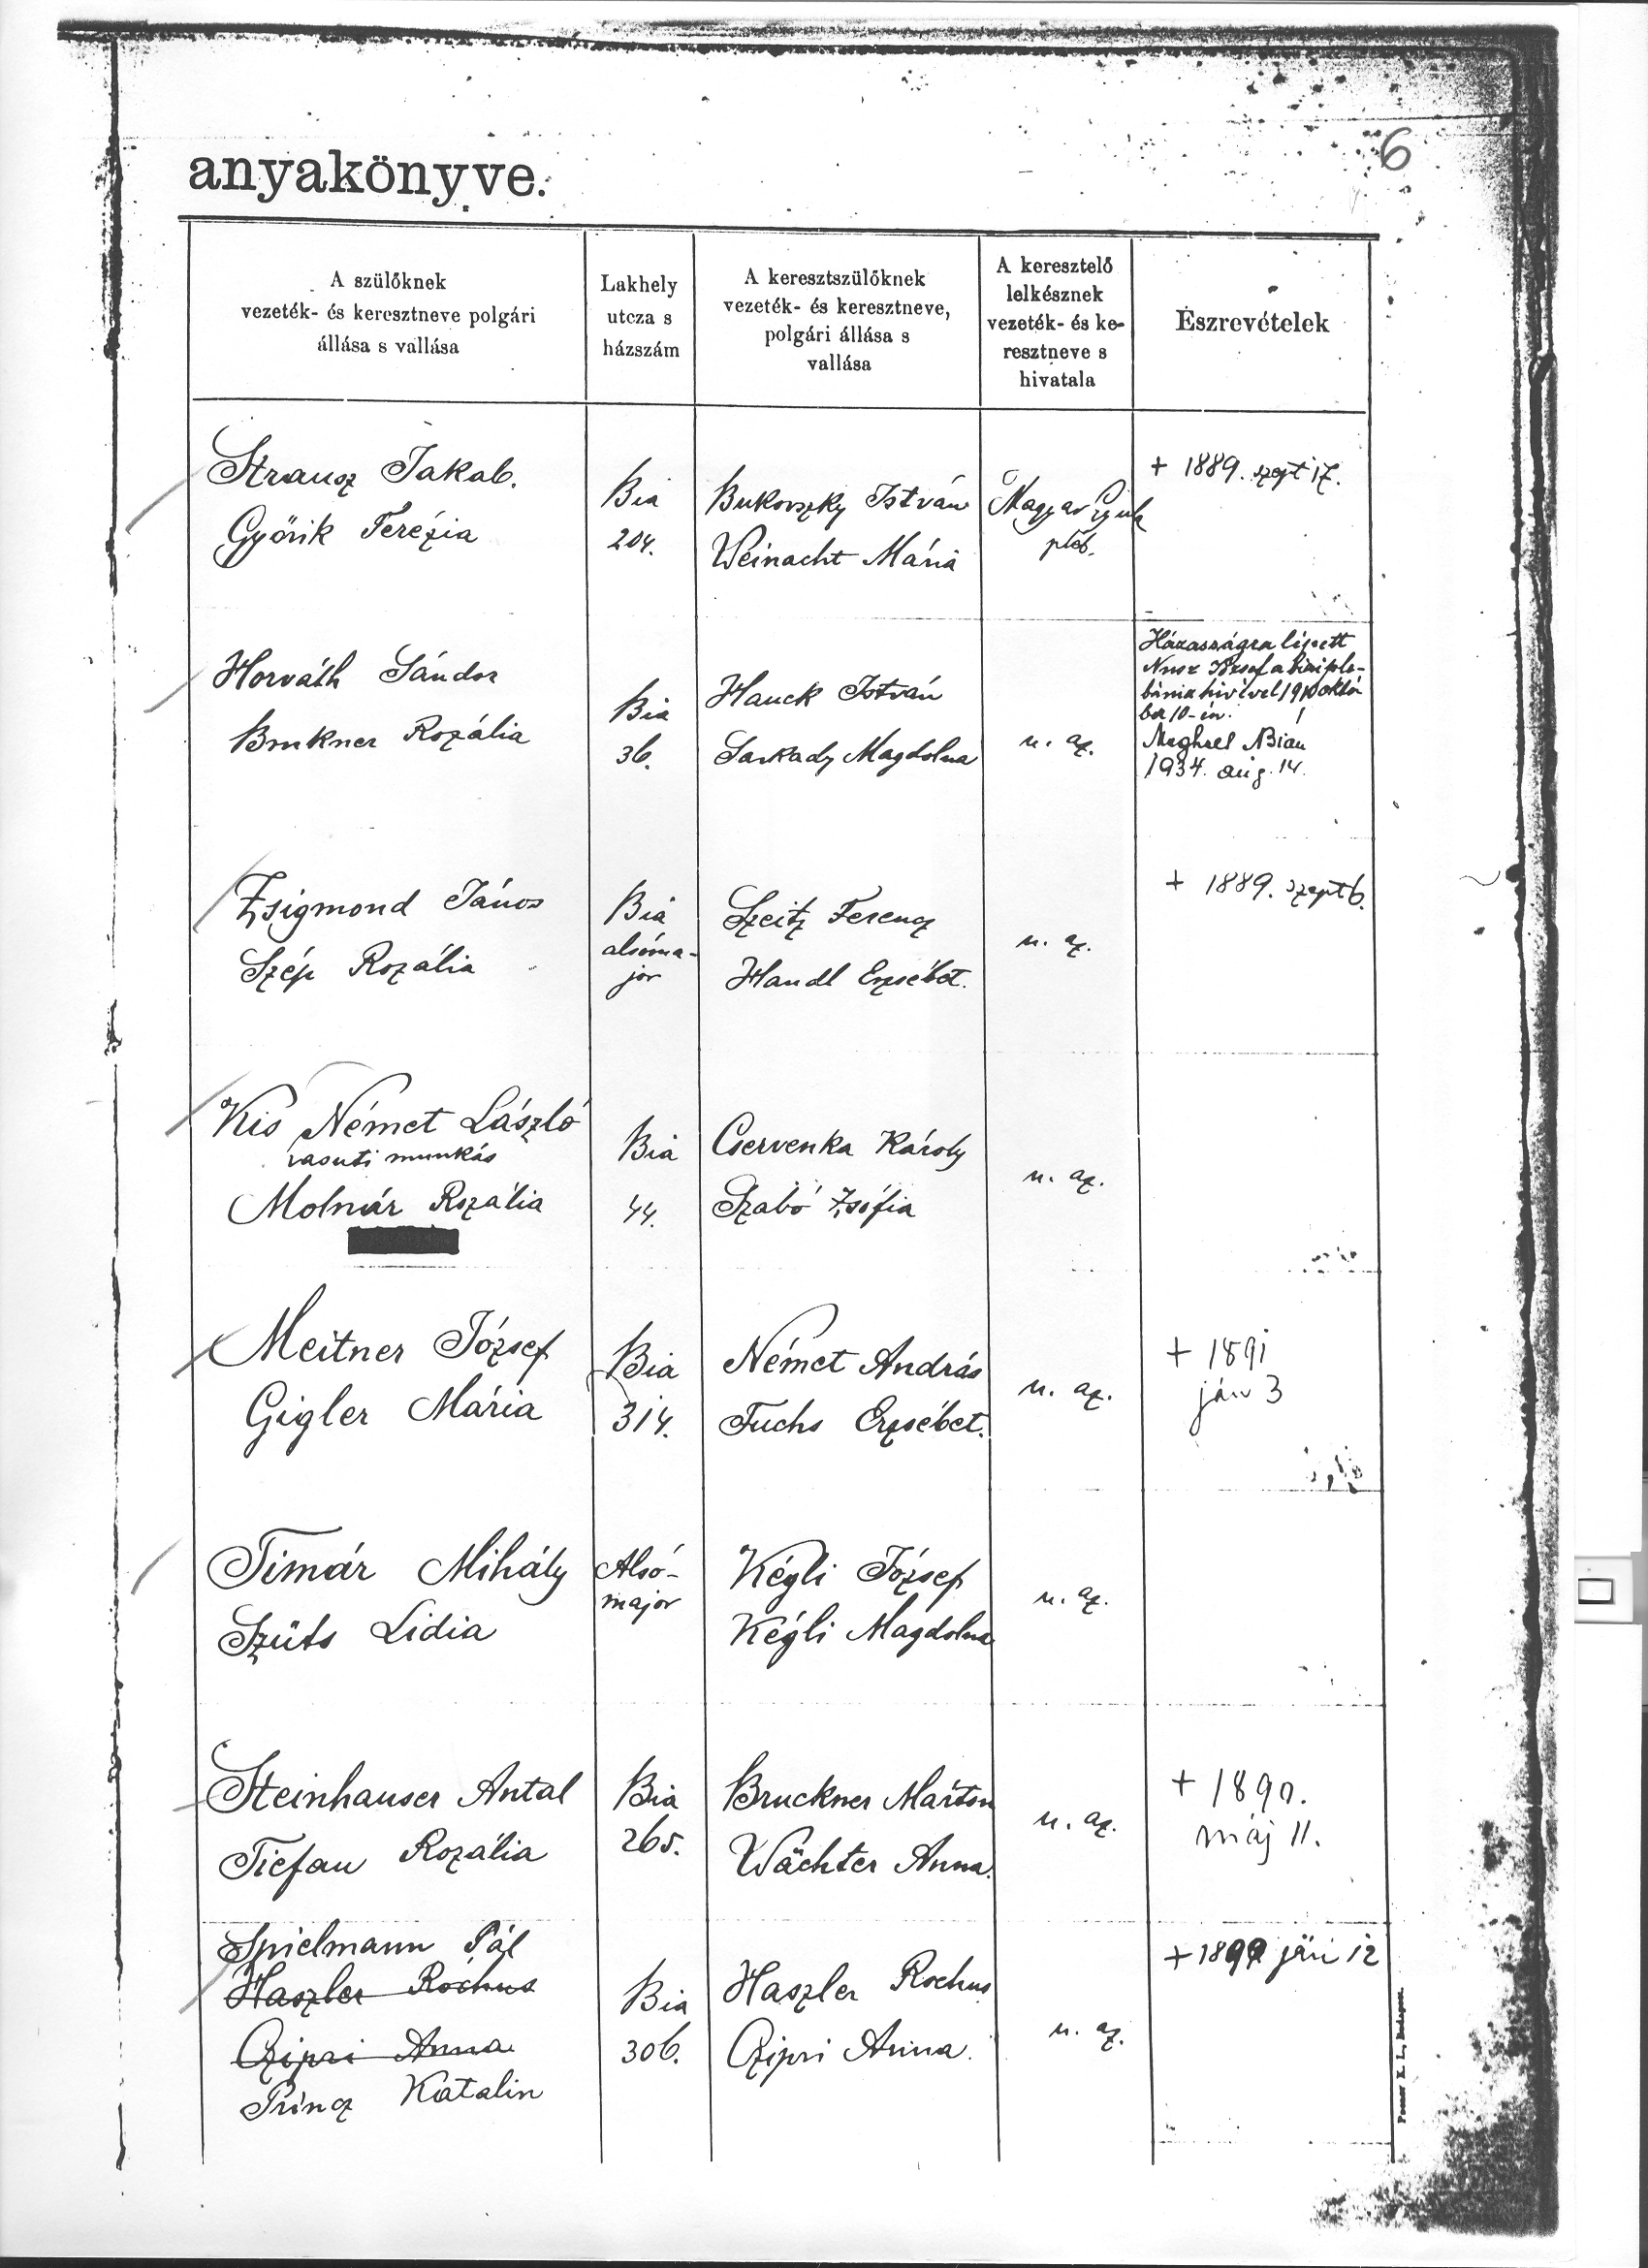 6
anyakönyve.
A szülőknek
vezeték- és keresztneve polgári
állása s vallása
Lakhely
utcza s
házszám
A keresztszülőknek
vezeték- és keresztneve,
polgári állása s
vallása
A keresztelő
lelkésznek
vezeték- és ke-
resztneve s
hivatala
Észrevételek
Strausz Jakab.
Győrik Terézia
Bia
204.
Bukovszky István
Weinacht Mária
Magyar Gyula
pléb.
+ 1889. szept 17.
Horváth Sándor
Brukner Rozália
Bia
36.
Hauck István
Sarkady Magdolna
u. az.
Házasságra lépett
Nusz József a biai plé-
bánia hívével 1910 októ
ber 10-én.
Meghalt Bián
1934. aug. 14.
Zsigmond János
Szép Rozália
Bia
alsóma-
jor
Szeitz Ferencz
Handl Erzsébet.
u. az.
+ 1889. szept 6.
Kis Német László
vasuti munkás
Molnár Rozália
Bia
44.
Cservenka Károly
Szabó Zsófia
u. az.
Meitner József
Gigler Mária
Bia
314.
Német András
Fuchs Erzsébet.
u. az.
+ 1891
jan 3
Timár Mihály
Szüts Lidia
Alsó-
major
Kégli József
Kégli Magdolna
u. az.
Steinhauser Antal
Tiefau Rozália
Bia
265.
Bruckner Márton
Wächter Anna.
u. az.
+ 1890.
máj 11.
Spielmann Pál
Haszler Rochus
Czipri Anna
Princz Katalin
Bia
306.
Haszler Rochus
Czipri Anna.
u. az.
+ jan 12
Posner K. L., Budapest.